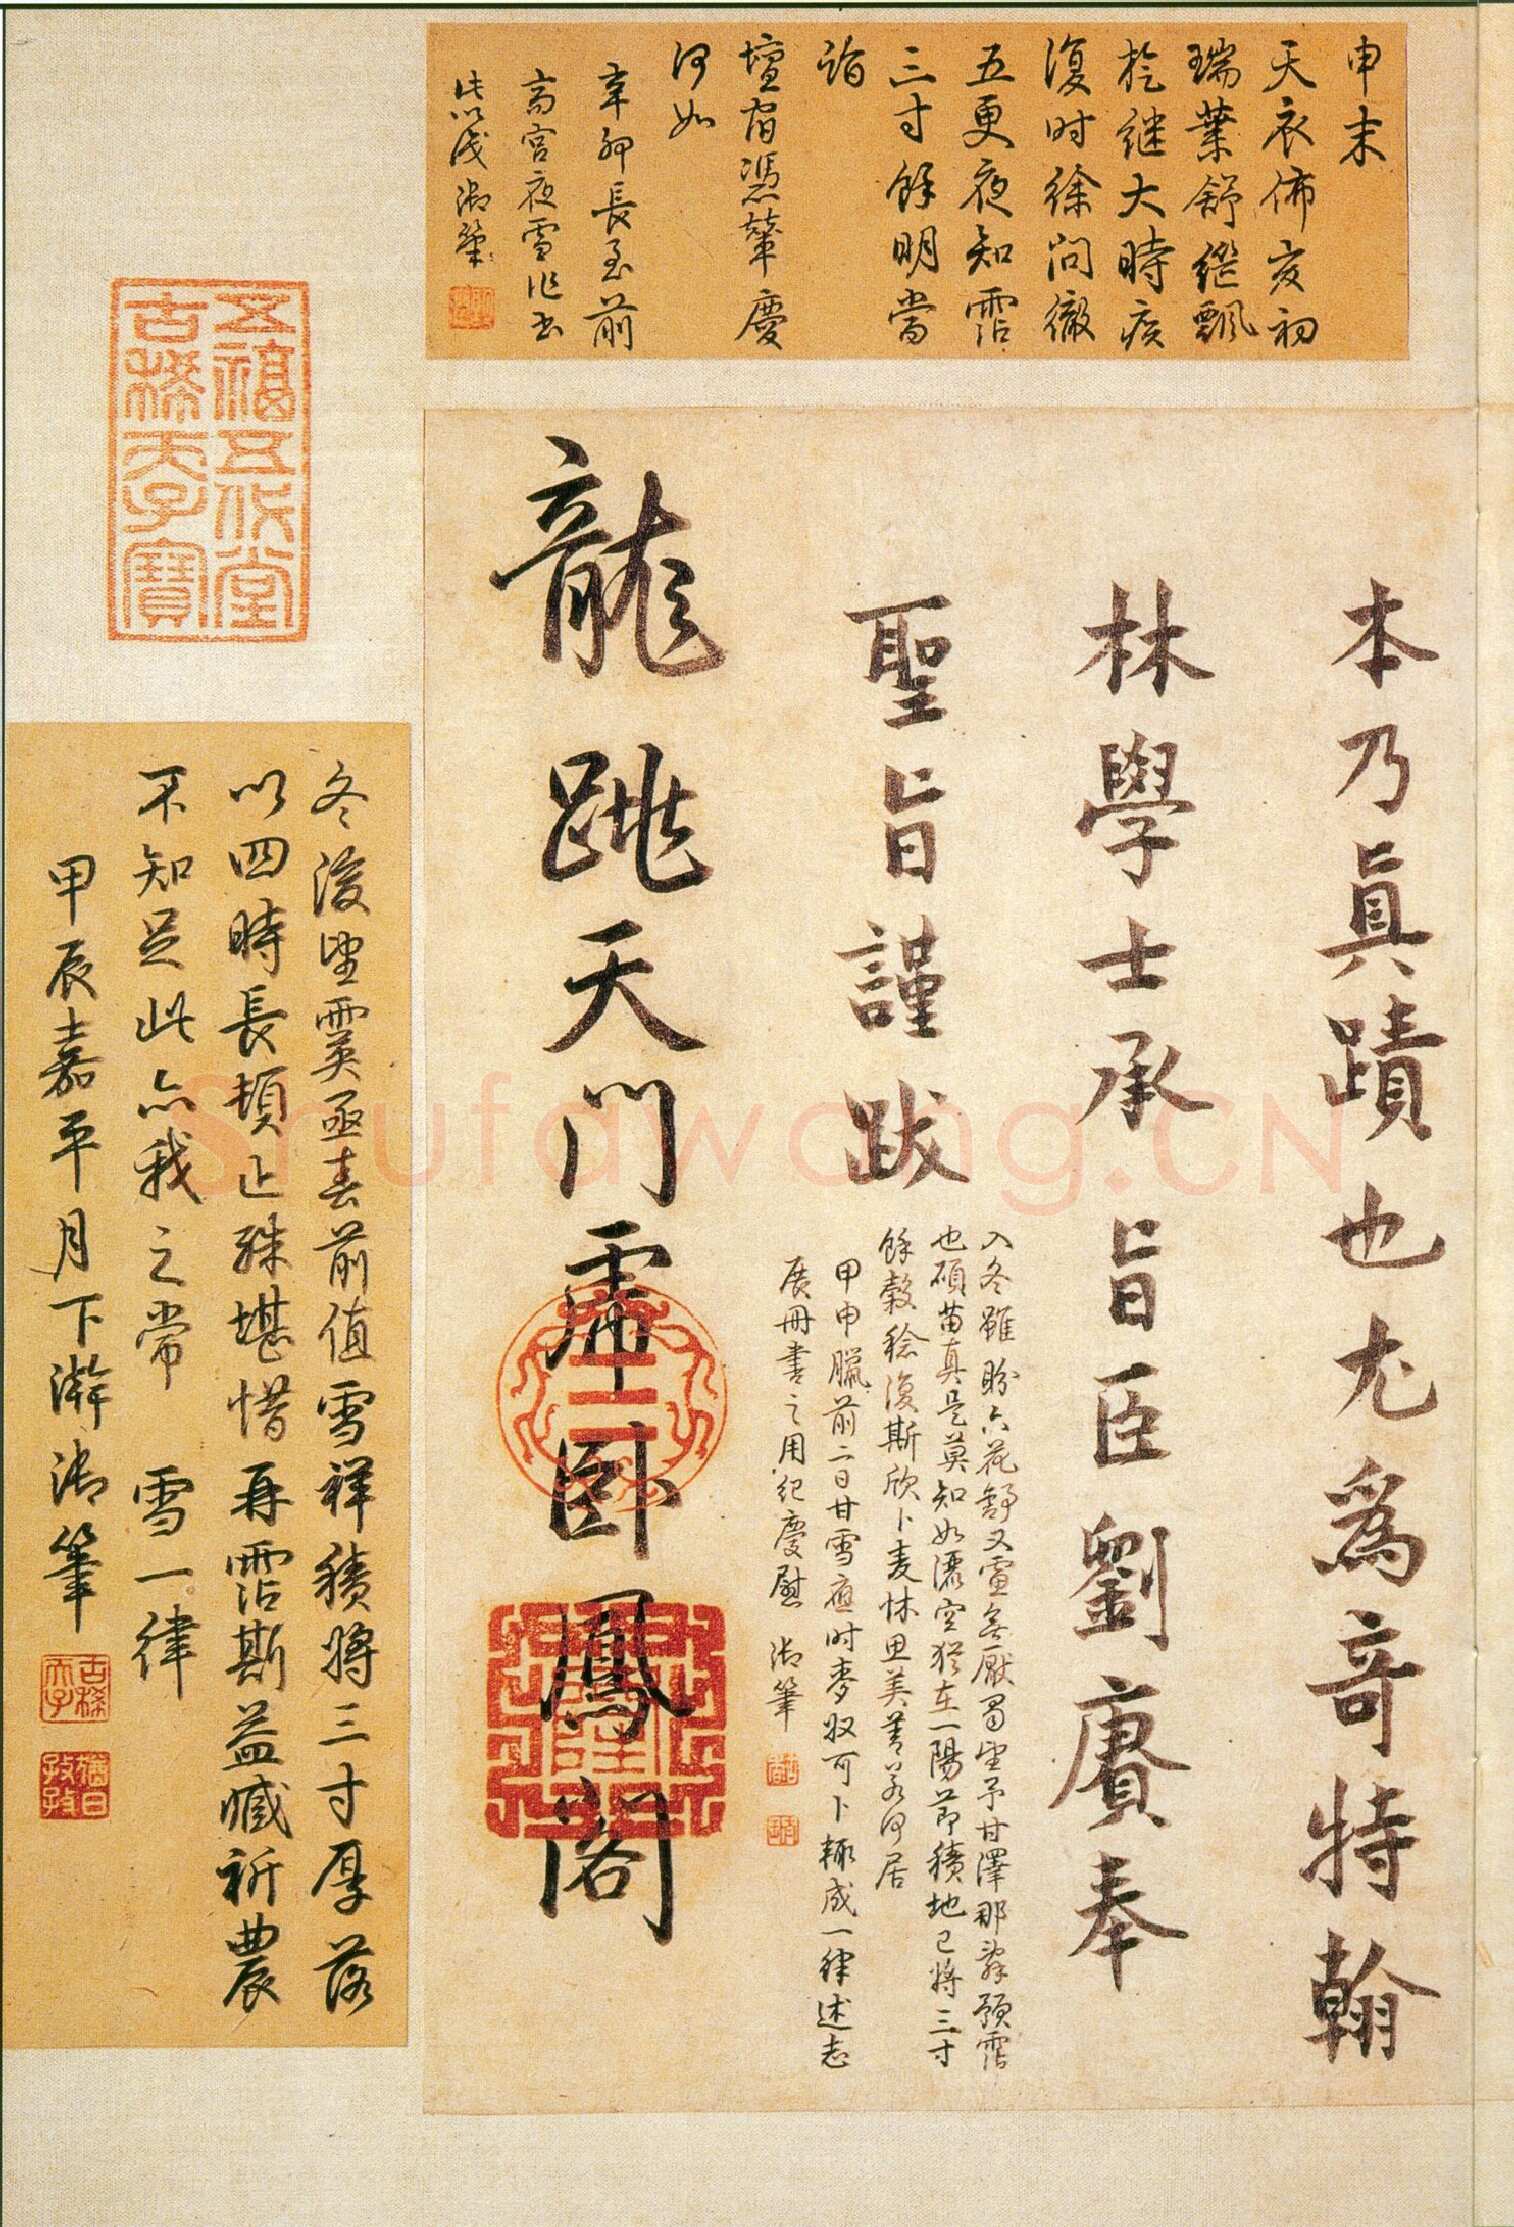 申末
天衣佈亥初
瑞葉舒繼飄
於繼大時疾
復时徐问徹
五更夜知霑
三寸餘明當
詣
壇宿憑輦慶
何如
辛卯長至前
齋宮夜雪作書
此以識御筆
本乃真蹟也尤為奇特翰
林學士承旨臣劉賡奉
聖旨謹跋
入冬雖盼六花舒又霊無厭蜀望予甘澤那辭預霑
也碩苗真是莫知如灑空猶在一陽節積地已將三寸
餘穀稔復斯欣卜麦休思美菁若何居
甲申臘前二日甘雪應时麥収可卜輒成一律述志
展冊書之用紀慶慰 御筆
龍跳天門虎卧鳳閣
五福五代堂
古稀天子寶
冬後望霙亟春前值雪祥積將三寸厚落
以四時長頓止殊堪惜再霑斯益臧祈農
不知足此亦我之常 雪一律
甲辰嘉平月下澣御筆
古稀天子
猶日孜孜
shufawang.CN